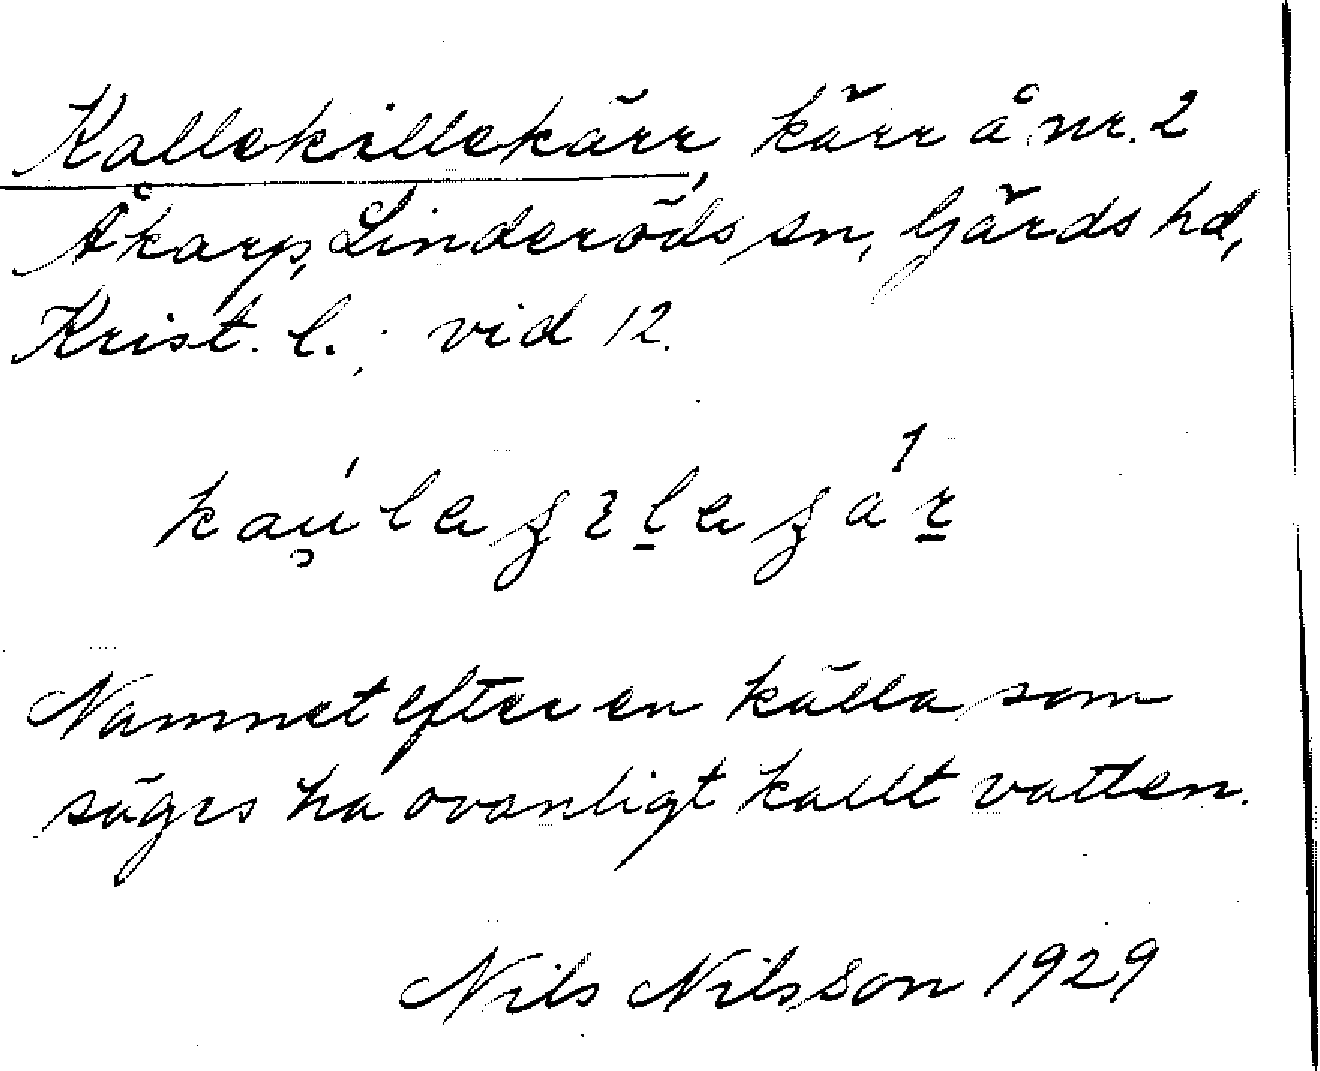 Kallekillekärr, kärr å nr. 2
Åkarp, Linderöds sn, Gärds hd,
Krist. l. vid 12.
Namnet efter en källa som
säges ha ovanligt kallt vatten.
Nils Nilsson 1929